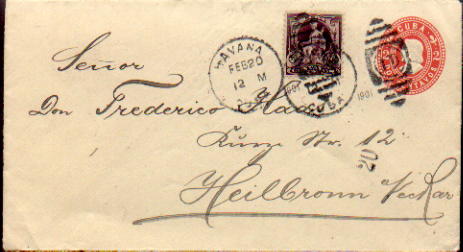 HAVANA
FEB 20
12 M
1901
CUBA
1901
CUBA
CENTAVOS
Señor
Don Frederico
Kurze Str. 12
20
Heilbronn a/Neckar